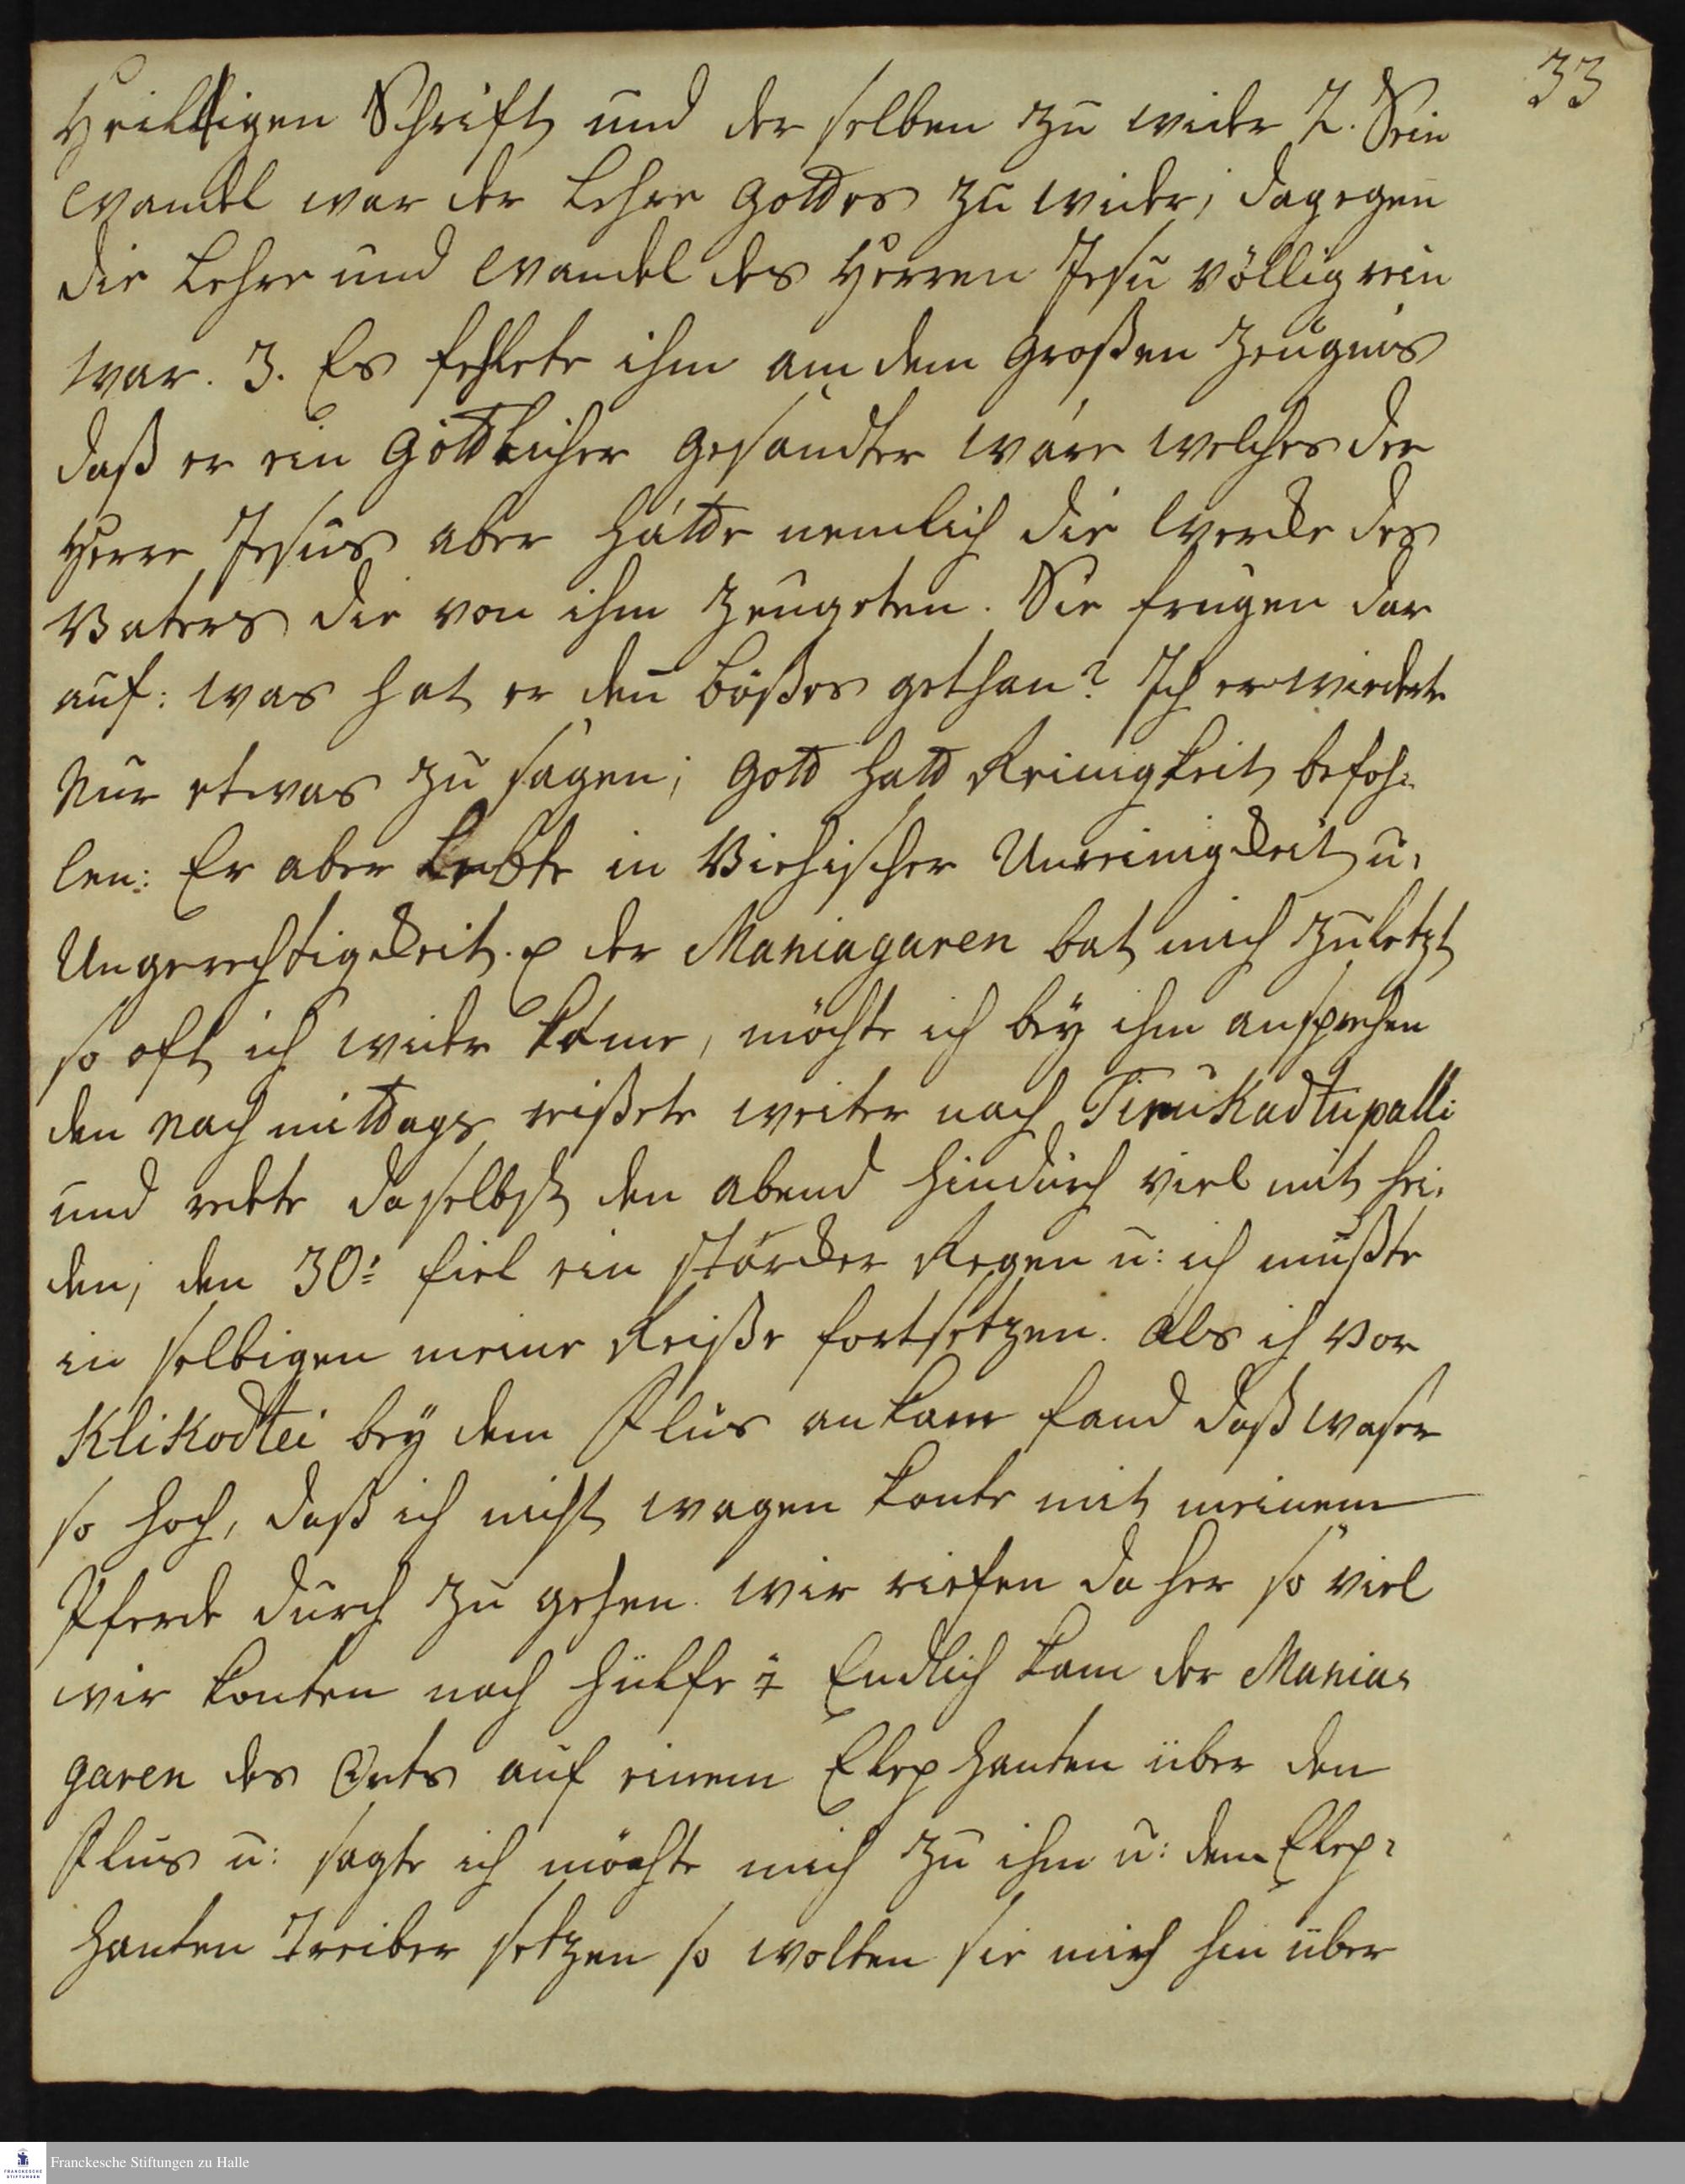 33
Heilligen Schrifft und der selben zu wider 2. Sein
Wandel war der Lehre Gottes zu wider; dagegen
die Lehre und Wandel des Herren Jesu völlig rein
war. 3. Es fehlete ihm an dem Großen Zeugnis
daß er ein Göttlicher Gesandter wäre welches der
Herre Jesus aber hätte nemlich die Wercke des
Vaters die von ihm zeugeten. Sie frugen dar
auf: was hat er deñ bößes gethan? Ich erwiederte
Nur etwas zu sagen; Gott hatt Reinigkeit befoh-
len: Er aber Lebte in Viehischer Unreinigkeit u.
Ungerechtigckeit. p der Maniagaren bat mich zuletzt
so oft ich wider käme, möchte ich bey ihm ansprechen
den nach mittags reißete weiter nach Tirukadtupalli
und redete daselbst den abend hindurch viel mit hei-
den; den 30: fiel ein starcker Regen u: ich mußte
in selbigen meine Reiße fortsetzen. Als ich vor
Klikodtei bey dem Flus ankam fand daß waßer
so hoch, daß ich nicht wagen konte mit meinem
Pferde durch zu gehen. wir riefen da her so viel
wir konten nach hülfe Endlich kam der Mania-
garen des Orts auf einem Elephanten über den
Flus u: sagte ich möchte mich zu ihm u: dem Elep-
hanten Treiber setzen so wolten sie mich hin über
Franckesche Stiftungen zu Halle
FRANCKESCHE
STIFTUNGEN